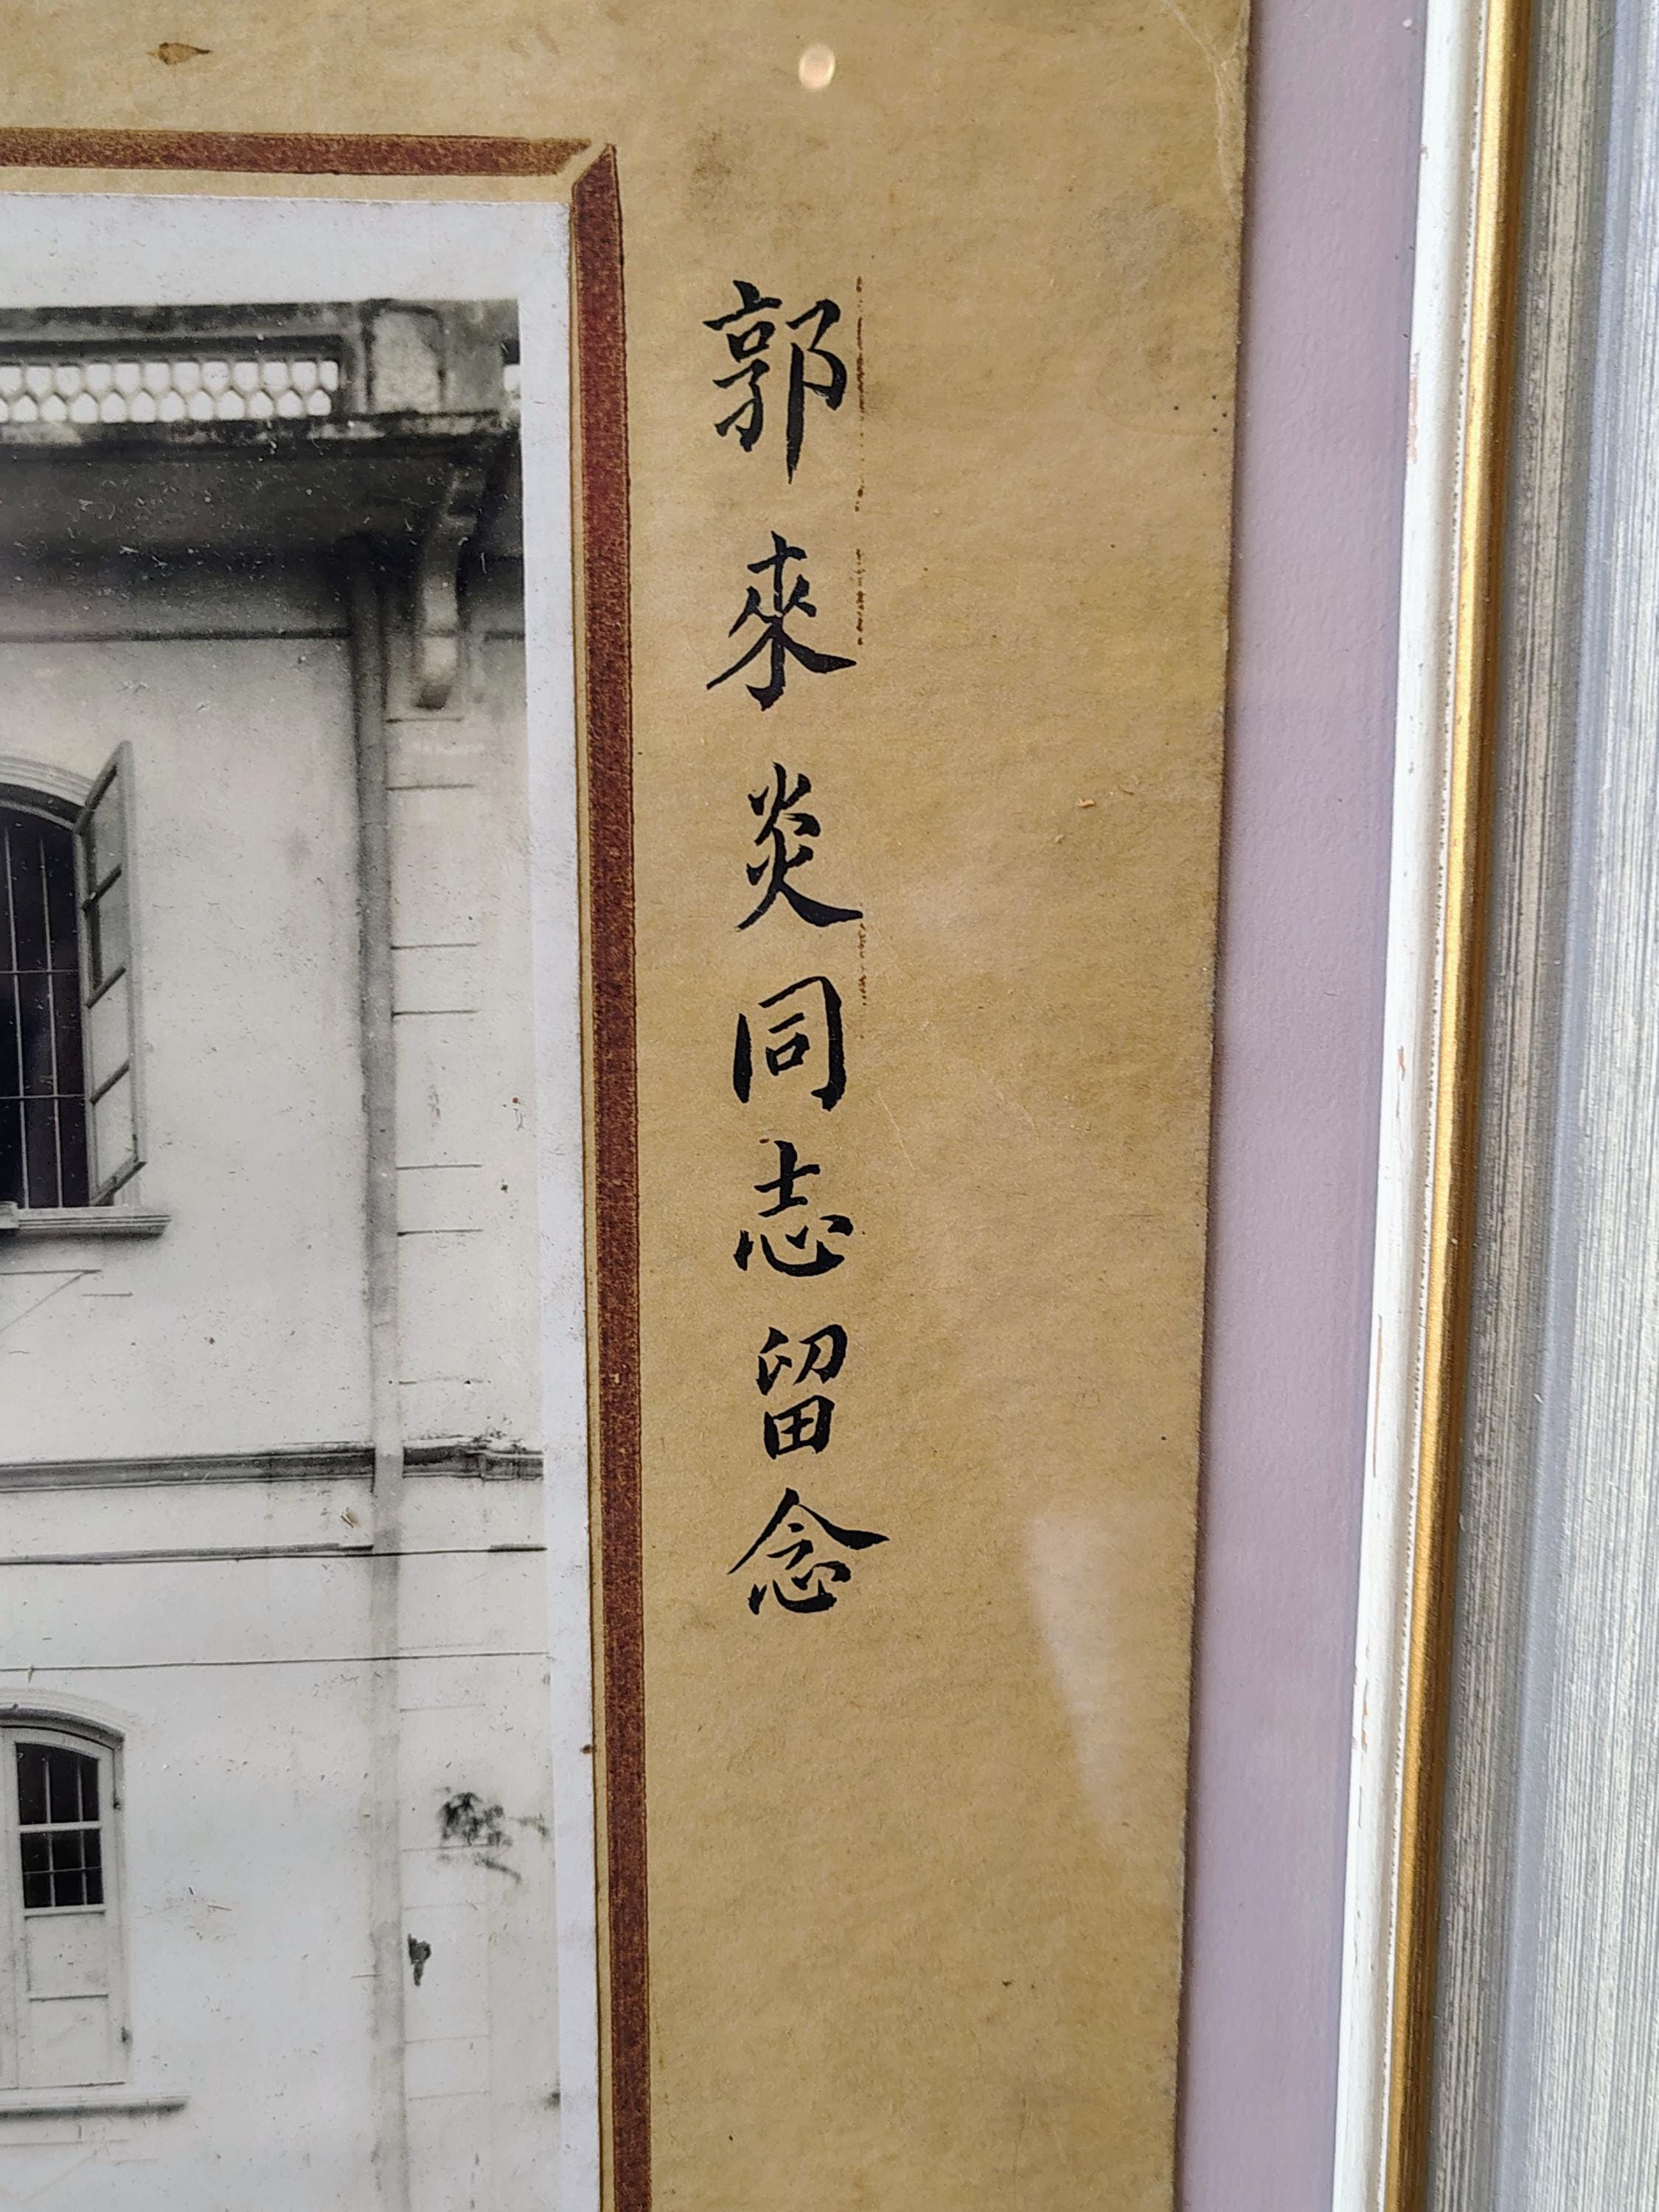 郭來炎同志留念